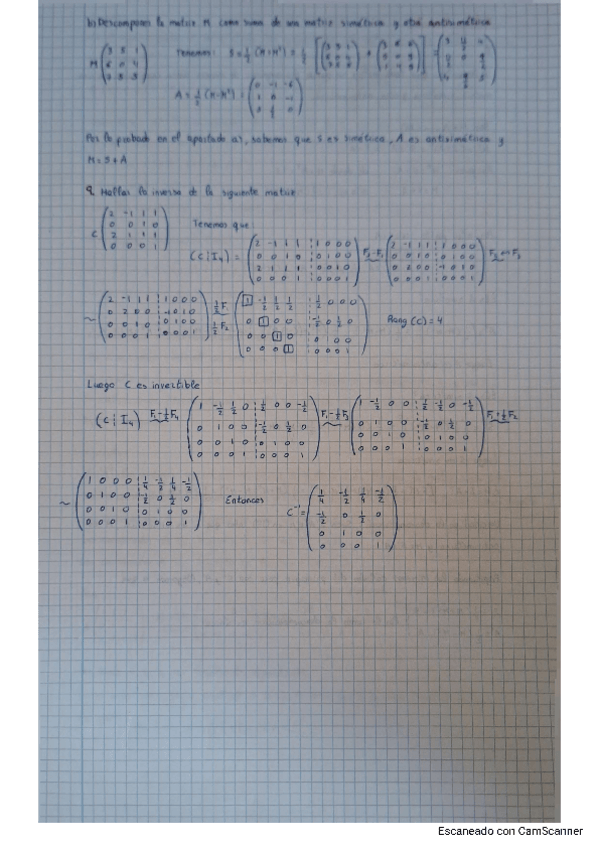 b) Descomponer la matriz M como suma de una matriz simétrica y otra antisimétrica
M Tenemos: S = 1/2 (M + Mᵗ) = 1/2
A = 1/2 (M - Mᵗ) =
Por lo probado en el apartado a), sabemos que S es simétrica, A es antisimétrica y
M = S + A
9. Hallar la inversa de la siguiente matriz
C (2 -1 1 1 / 0 0 1 0 / 2 1 1 1 / 0 0 0 1) Tenemos que
(C | I₄) = (2 -1 1 1 | 1 0 0 0 / 0 0 1 0 | 0 1 0 0 / 2 1 1 1 | 0 0 1 0 / 0 0 0 1 | 0 0 0 1)
~ (2 -1 1 1 | 1 0 0 0 / 0 2 0 0 | -1 0 1 0 / 0 0 1 0 | 0 1 0 0 / 0 0 0 1 | 0 0 0 1) (1 -1/2 1/2 1/2 | 1/2 0 0 0 / 0 1 0 0 | -1/2 0 1/2 0 / 0 0 1 0 | 0 1 0 0 / 0 0 0 1 | 0 0 0 1) Rang (C) = 4
Luego C es invertible
(C | I₄) F₁-1/2F₄ (1 -1/2 1/2 0 | 1/2 0 0 -1/2 / 0 1 0 0 | -1/2 0 1/2 0 / 0 0 1 0 | 0 1 0 0 / 0 0 0 1 | 0 0 0 1) F₁-1/2F₃ (1 -1/2 0 0 | 1/2 -1/2 0 -1/2 / 0 1 0 0 | -1/2 0 1/2 0 / 0 0 1 0 | 0 1 0 0 / 0 0 0 1 | 0 0 0 1) F₁+1/2F₂
Entonces C⁻¹ = (1/4 -1/2 1/4 -1/2 / -1/2 0 1/2 0 / 0 1 0 0 / 0 0 0 1)
Escaneado con CamScanner